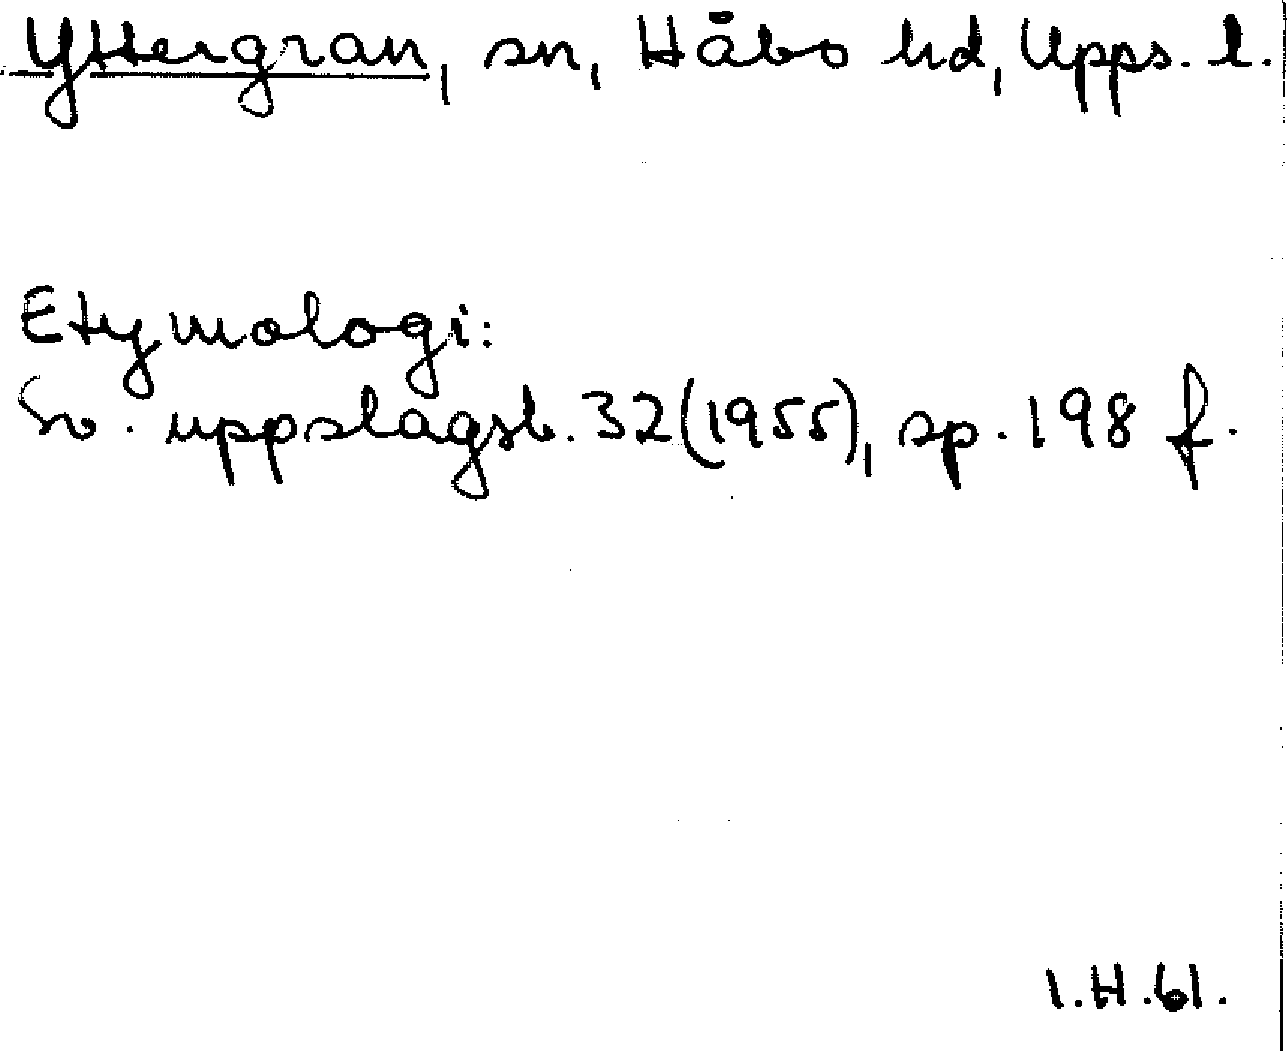 Yttergran, sn, Håbo hd, Upps. l.
Etymologi:
Sv. uppslagsb. 32 (1955), sp. 198 f.
I.H.61.